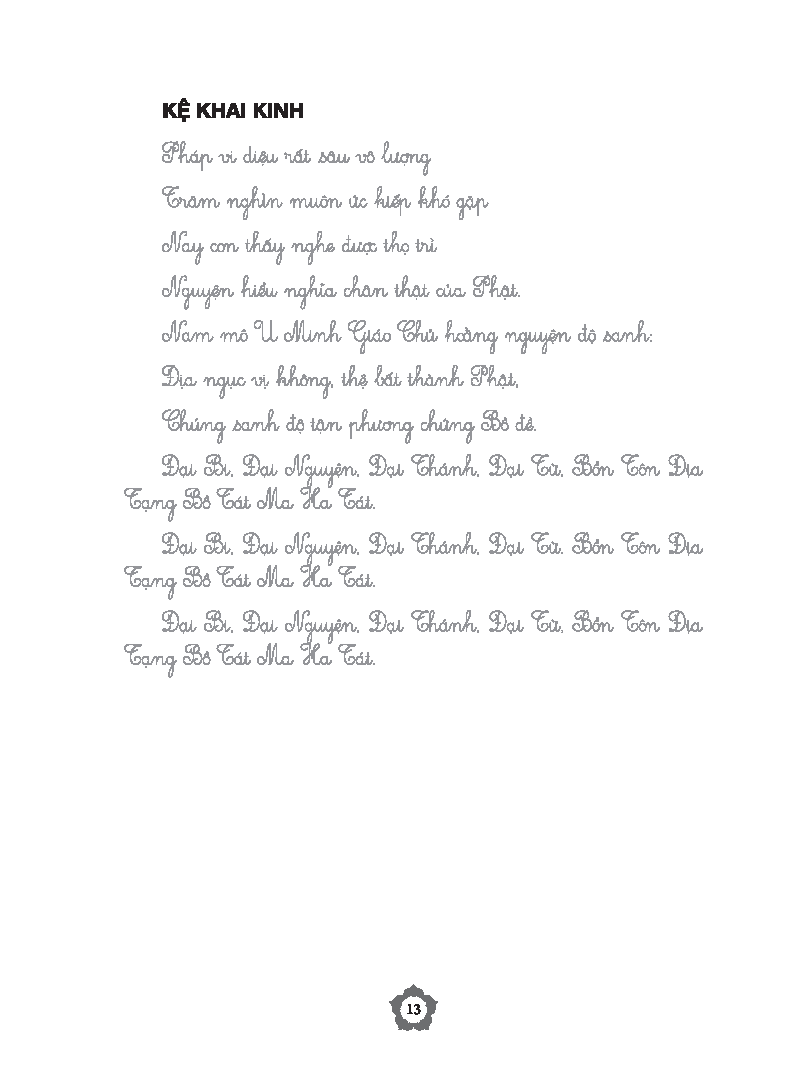 KỆ KHAI KINH
Pháp vi diệu rất sâu vô lượng
Trăm nghìn muôn ức kiếp khó gặp
Nay con thấy nghe được thọ trì
Nguyện hiểu nghĩa chân thật của Phật.
Nam mô U Minh Giáo Chủ hoằng nguyện độ sanh:
Địa ngục vị không, thệ bất thành Phật,
Chúng sanh độ tận phương chứng Bồ đề.
Đại Bi, Đại Nguyện, Đại Thánh, Đại Từ, Bổn Tôn Địa
Tạng Bồ Tát Ma Ha Tát.
Đại Bi, Đại Nguyện, Đại Thánh, Đại Từ, Bổn Tôn Địa
Tạng Bồ Tát Ma Ha Tát.
Đại Bi, Đại Nguyện, Đại Thánh, Đại Từ, Bổn Tôn Địa
Tạng Bồ Tát Ma Ha Tát.
13